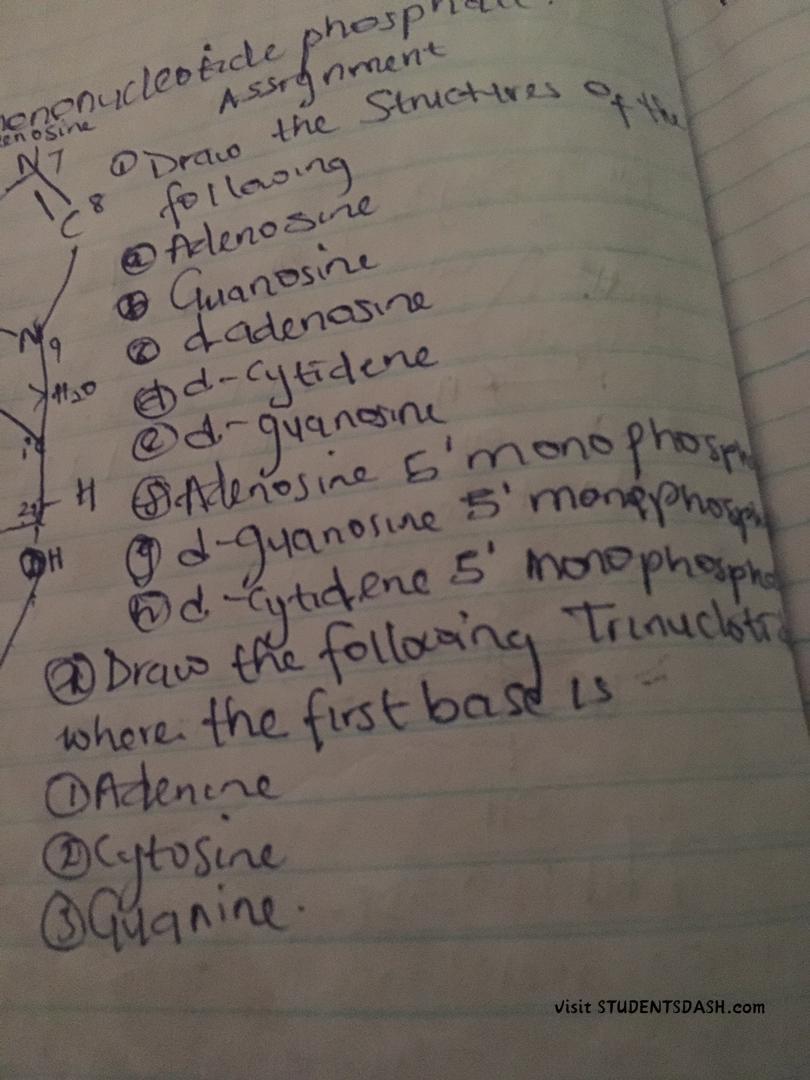 mononucleotide phosph
Assignment
enosine
N7
① Draw the Structures of the
C8
following
ⓐ Adenosine
ⓑ Guanosine
N9
ⓒ d-adenosine
H2O
ⓓ d-Cytidene
ⓔ d-guanosine
H
ⓕ Adenosine 5' monophosph
OH
ⓖ d-guanosine 5' monophosph
ⓗ d-Cytidene 5' monophospha
② Draw the following Trinucloti
where the first base is
① Adenine
② Cytosine
③ Guanine.
Visit STUDENTSDASH.com